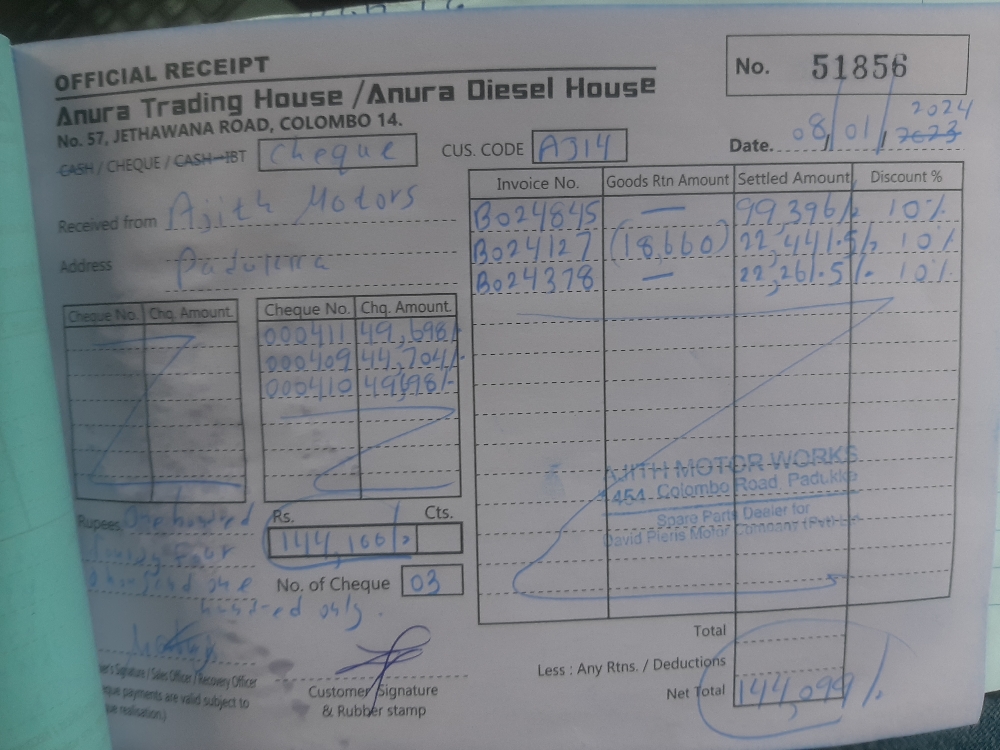 OFFICIAL RECEIPT
Anura Trading House / Anura Diesel House
No. 57, JETHAWANA ROAD, COLOMBO 14.
No. 51856
Date. 08/01/ 2023 2024
CASH / CHEQUE / CASH-IBT Cheque
CUS. CODE A314
Received from Ajith Motors
Address Padukka
Invoice No. Goods Rtn Amount Settled Amount Discount %
B024845 — 99,396/- 10%
B024127 (18,660) 22,441.5/- 10%
B024378 — 22,261.5/- 10%
Cheque No. Chq. Amount. Cheque No. Chq. Amount.
000411 49,698/-
000409 44,704/-
000410 49698/-
AJITH MOTOR WORKS
454, Colombo Road, Padukka
Spare Parts Dealer for
David Pieris Motor Company (Pvt) Ltd
Rupees. One hundred
four
thousand one
hundred only.
Rs. Cts.
144,100/-
No. of Cheque 03
's Signature / Sales Officer / Recovery Officer
que payments are valid subject to
que realisation.)
Customer Signature
& Rubber stamp
Total
Less : Any Rtns. / Deductions
Net Total 144,099/-